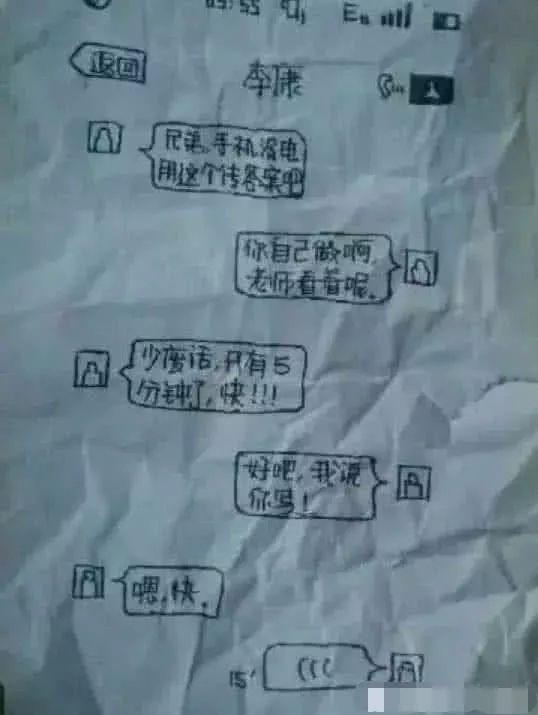 返回
李康
兄弟,手机没电
用这个传答案吧
你自己做啊,
老师看着呢.
少废话,只有5
分钟了,快!!!
好吧,我说
你写!
嗯,快.
15'